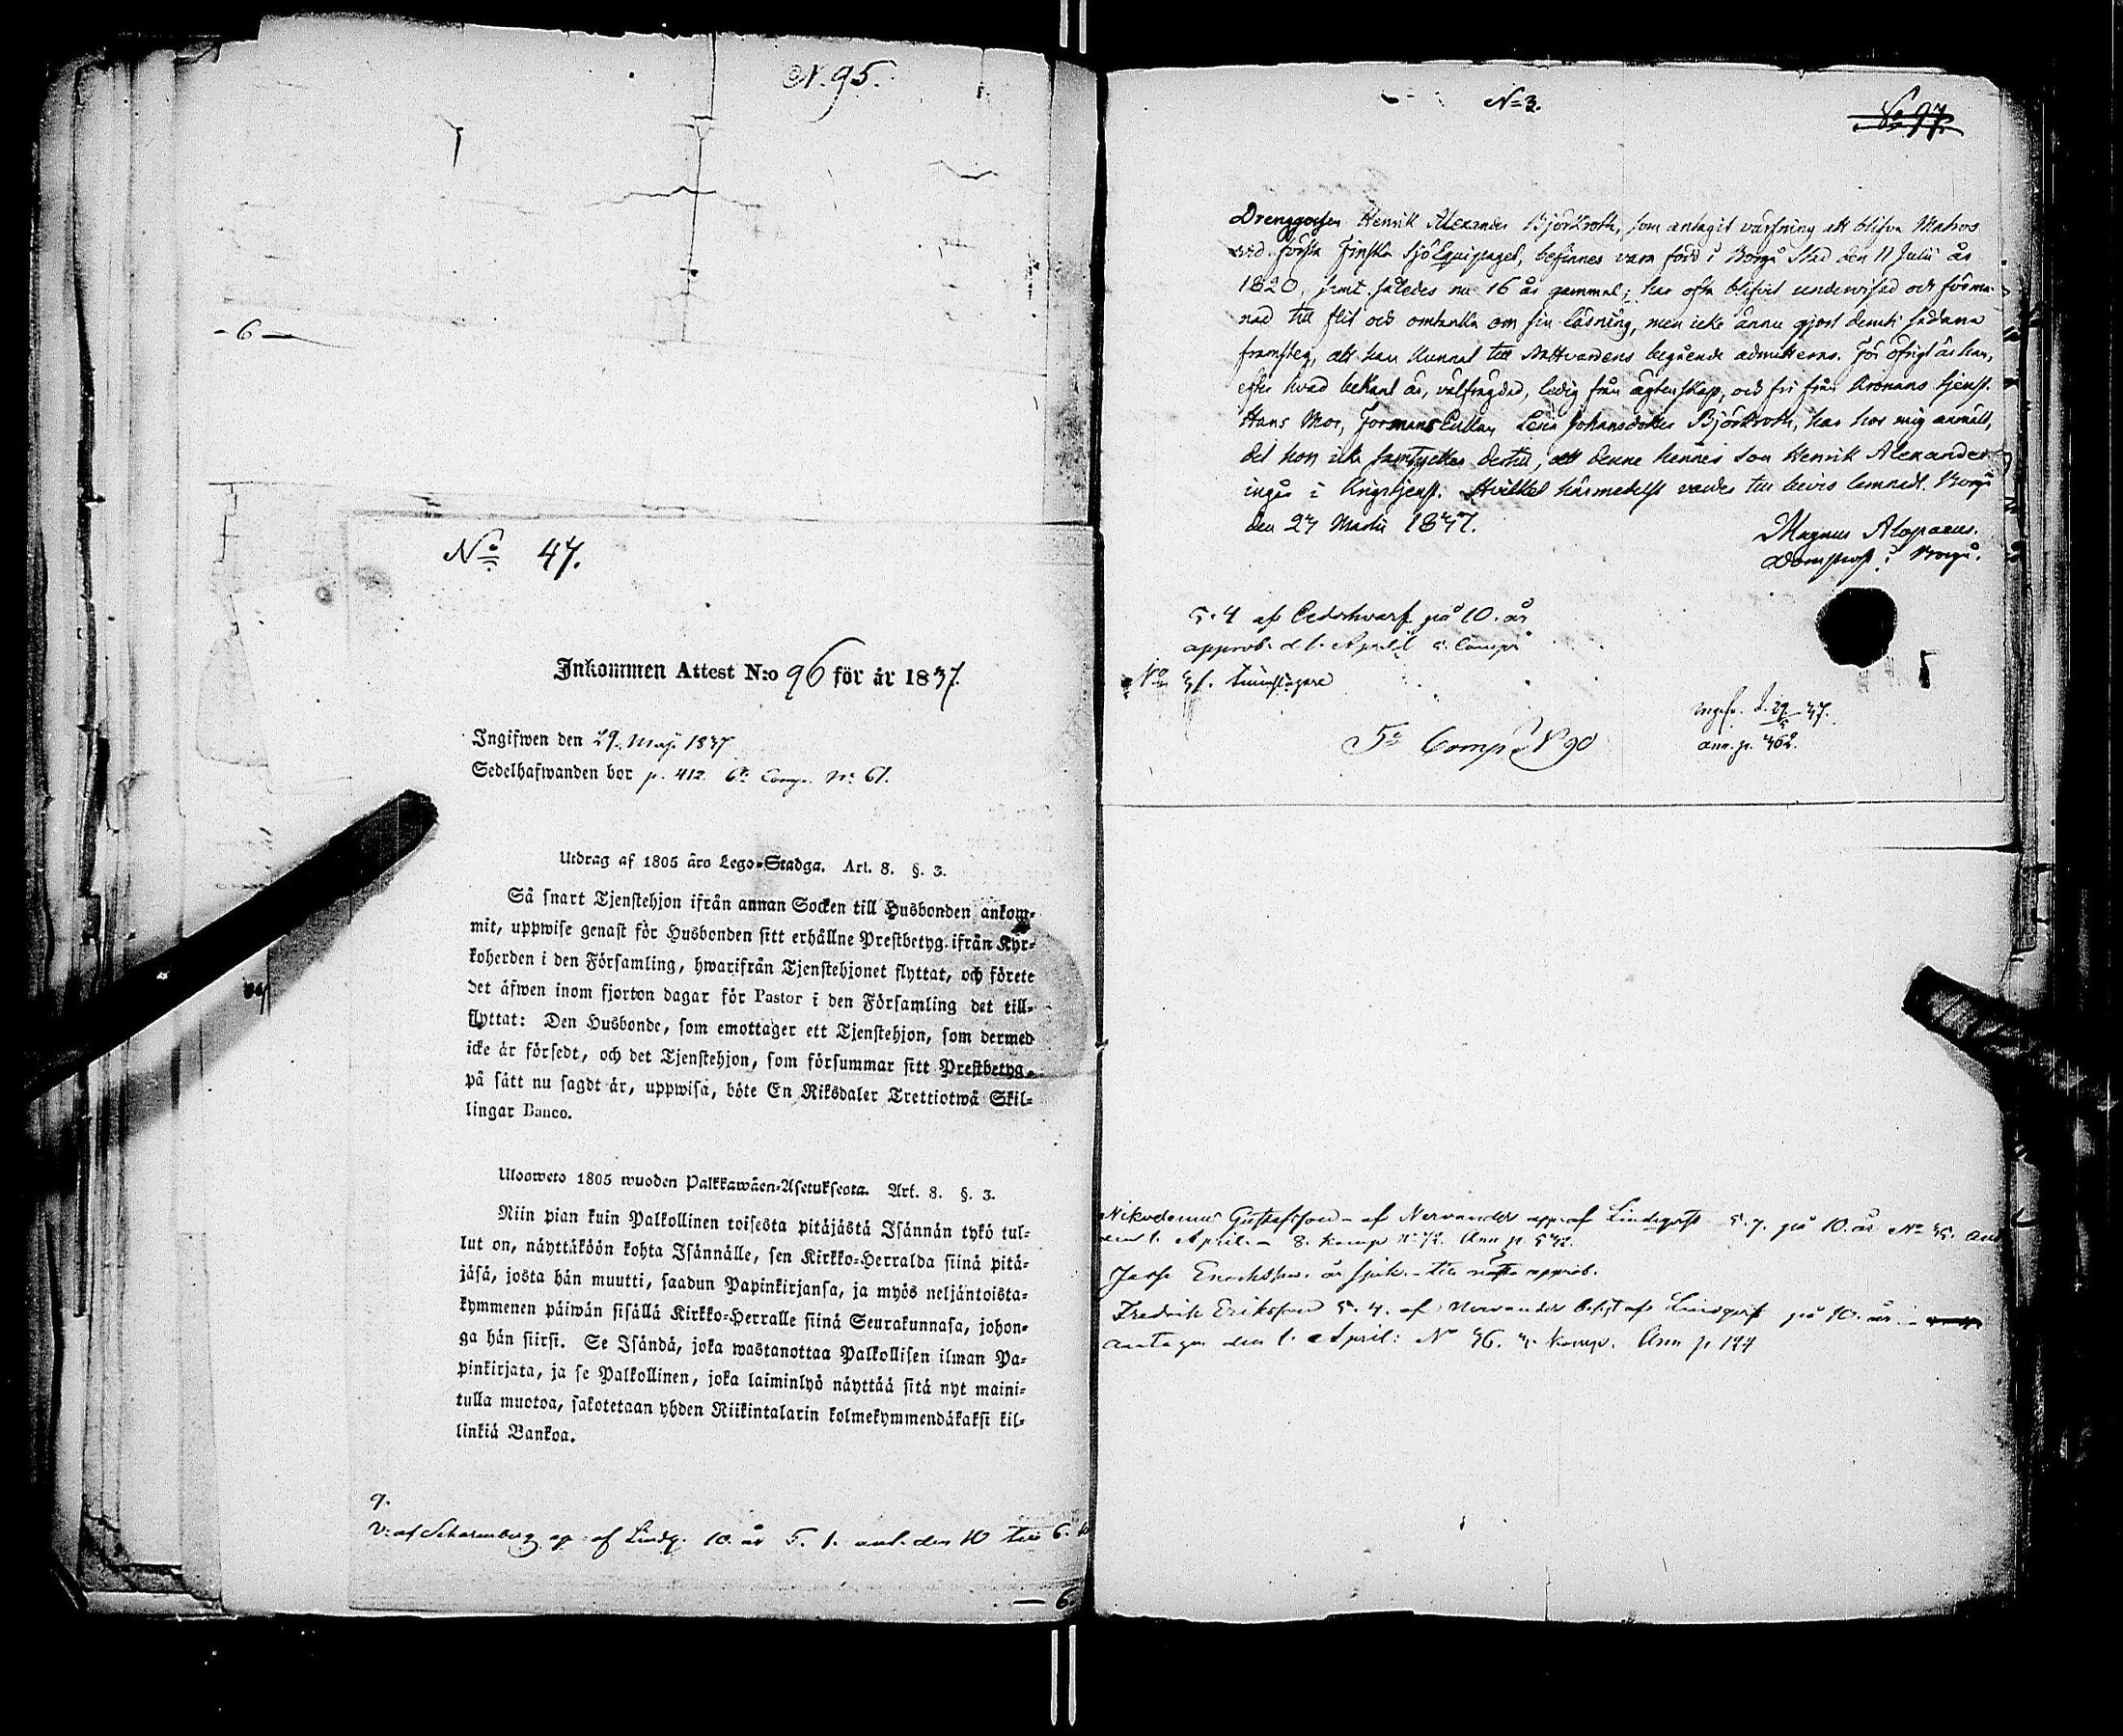 N. 95.
- 6 -
No 47.
Inkommen Attest N:o 96 för år 1837.
Ingifwen den 29. Maji 1837
Sedelhafwanden bor p. 412. 6te Comp. No 61.
Utdrag af 1805 års Lego-Stadga. Art. 8. §. 3.
Så snart Tjenstehjon ifrån annan Socken till Husbonden ankom-
mit, uppwise genast för Husbonden sitt erhållne Prestbetyg ifrån Kyr-
koherden i den Församling, hwarifrån Tjenstehjonet flyttat, och förete
det äfwen inom fjorton dagar för Pastor i den Församling det till-
flyttat: Den Husbonde, som emottager ett Tjenstehjon, som dermed
icke är försedt, och det Tjenstehjon, som försummar sitt Prestbetyg,
på sätt nu sagdt är, uppwisa, böte En Riksdaler Trettiotwå Skil-
lingar Banco.
Ulosweto 1805 wuoden Palkkawäen-Asetuksesta. Art. 8. §. 3.
Niin pian kuin Palkollinen toisesta pitäjästä Isännän tykö tul-
lut on, näyttäköön kohta Isännälle, sen Kirkko-Herralda siinä pitä-
jäsä, josta hän muutti, saadun Papinkirjansa, ja myös neljäntoista-
kymmenen päiwän sisällä Kirkko-Herralle siinä Seurakunnasa, johon-
ga hän siirsi. Se Isändä, joka wastanottaa Palkollisen ilman Pa-
pinkirjata, ja se Palkollinen, joka laiminlyö näyttää sitä nyt maini-
tulla muotoa, sakotetaan yhden Riikintalarin kolmekymmendäkaksi kil-
linkiä Bankoa.
9.
V: af Scharenberg ap: af Lindq. 10. år 5. 1. ant. den 10 till 6.
— 6
N=3.
No 97
Drenggossen Henrik Alexander Björkroth, som antagit värfning att blifva Matros
vid Första Finska SjöEquipaget, befinnes vara född i Borgå Stad den 11 Julii år
1820, samt således nu 16 år gammal; har ofta blifvit undervisad och förma-
nad till flit och omtanka om sin läsning, men icke ännu gjort deruti sådana
framsteg, att han kunnat till Nattvardens begående admitteras. För öfrigt är han,
efter hvad bekant är, välfrägdad, ledig från ägtenskap, och fri från Kronans tjenst.
Hans Mor, FormansEnkan Lena Johansdotter Björkroth, har hos mig anmält,
det hon icke samtycker dertill, att denne hennes son Henrik Alexander
ingår i Krigstjenst. Hvilket härmedelst vardes till bevis lemnadt. Borgå
den 27 Martii 1837.
Magnus Alopaeus.
Domprost i Borgå.
5. 4 af Cederhvarf på 10. år
approb. d. 1. April 5. Comp.
No 31.
5e Comp. N 90
ingifv. d. 29/5 37.
ann. p. 362.
Nikodemus Gustafsson - af Nervander app. af Lindqvist 5. 7. på 10. år No 35. ant
den 1. April. - 8. Komp No 72. Ann p. 532.
Enochsson är sjuk. - till nästa approb.
Fredrik Eriksson 5. 4. af Nervander af Lindqvist på 10. år -
antagen den 1. April: No 36. 3. Komp. Ann p. 194